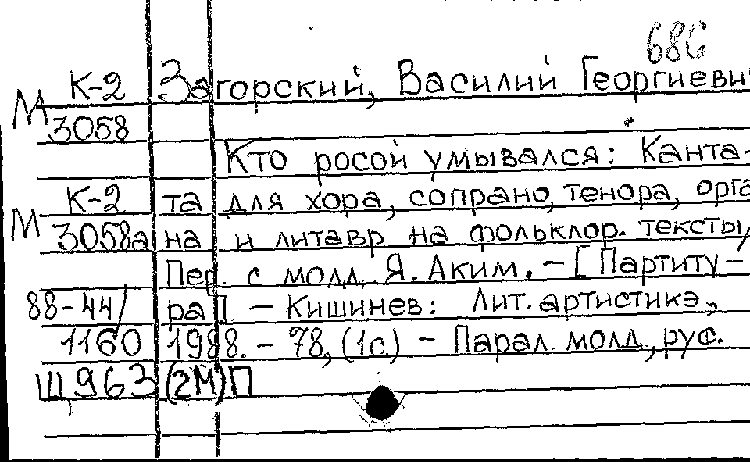 686
М К-2 Загорский, Василий Георгиеви
3058
Кто росой умывался: Канта-
К-2 та для хора, сопрано, тенора, орга
М 3058а на и литавр на фольклор. тексты/
Пер. с молд. Я. Аким. – [Партиту-
88-44/ ра] – Кишинев: Лит. артистикэ,
1160 1988. – 78, (1с.) – Парал. молд., рус.
Щ963(2М)П